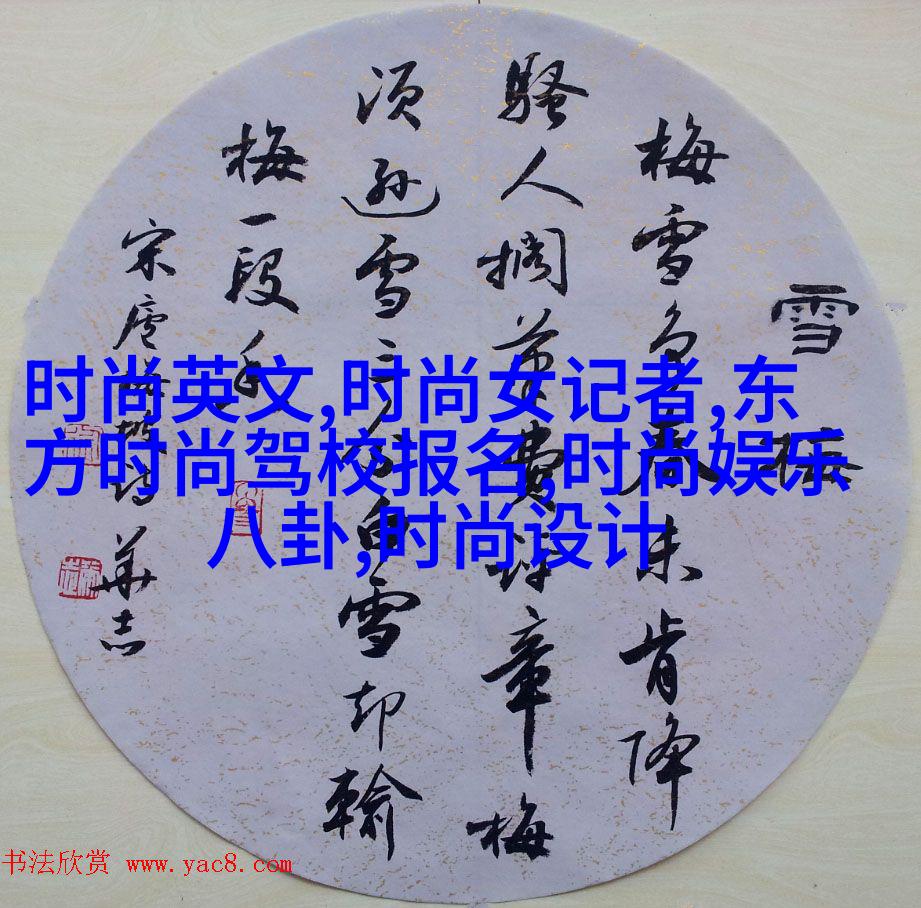 雪梅
梅雪争春未肯降
騷人擱筆費評章梅
須遜雪三分白雪却輸
梅一段香
宋盧梅坡詩 華志
时尚英文,时尚女记者,东
方时尚驾校报名,时尚娱乐
八卦,时尚设计
书法欣赏 www.yac8.com